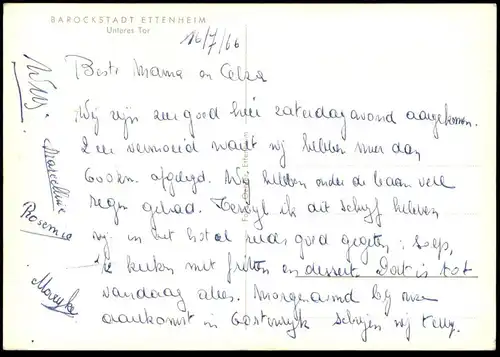 BAROCKSTADT ETTENHEIM
Unteres Tor
16/7/66
Beste Mama en
Wij zijn zeer goed hier zaterdagavond aangekomen.
Zeer vermoeid want wij hebben meer dan
600km. afgelegd. Wij hebben onder de baan veel
regen gehad. Terwijl ik dit schrijf hebben
wij in het hotel reeds goed gegeten: soep,
1/2 kieken met fritten en dessert. Dat is tot
vandaag alles. Morgenavond bij onze
aankomst in schrijven wij terug.
Willy.
Marcelline
Rosemie
Maryke